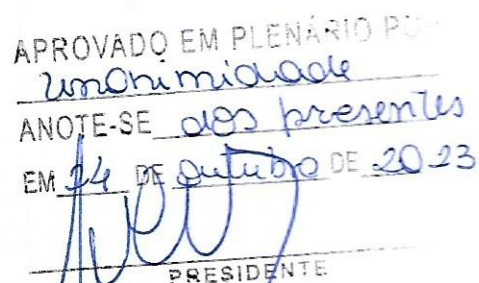 APROVADO EM PLENÁRIO POR
unanimidade
ANOTE-SE dos presentes
EM 24 DE Outubro DE 2023
PRESIDENTE